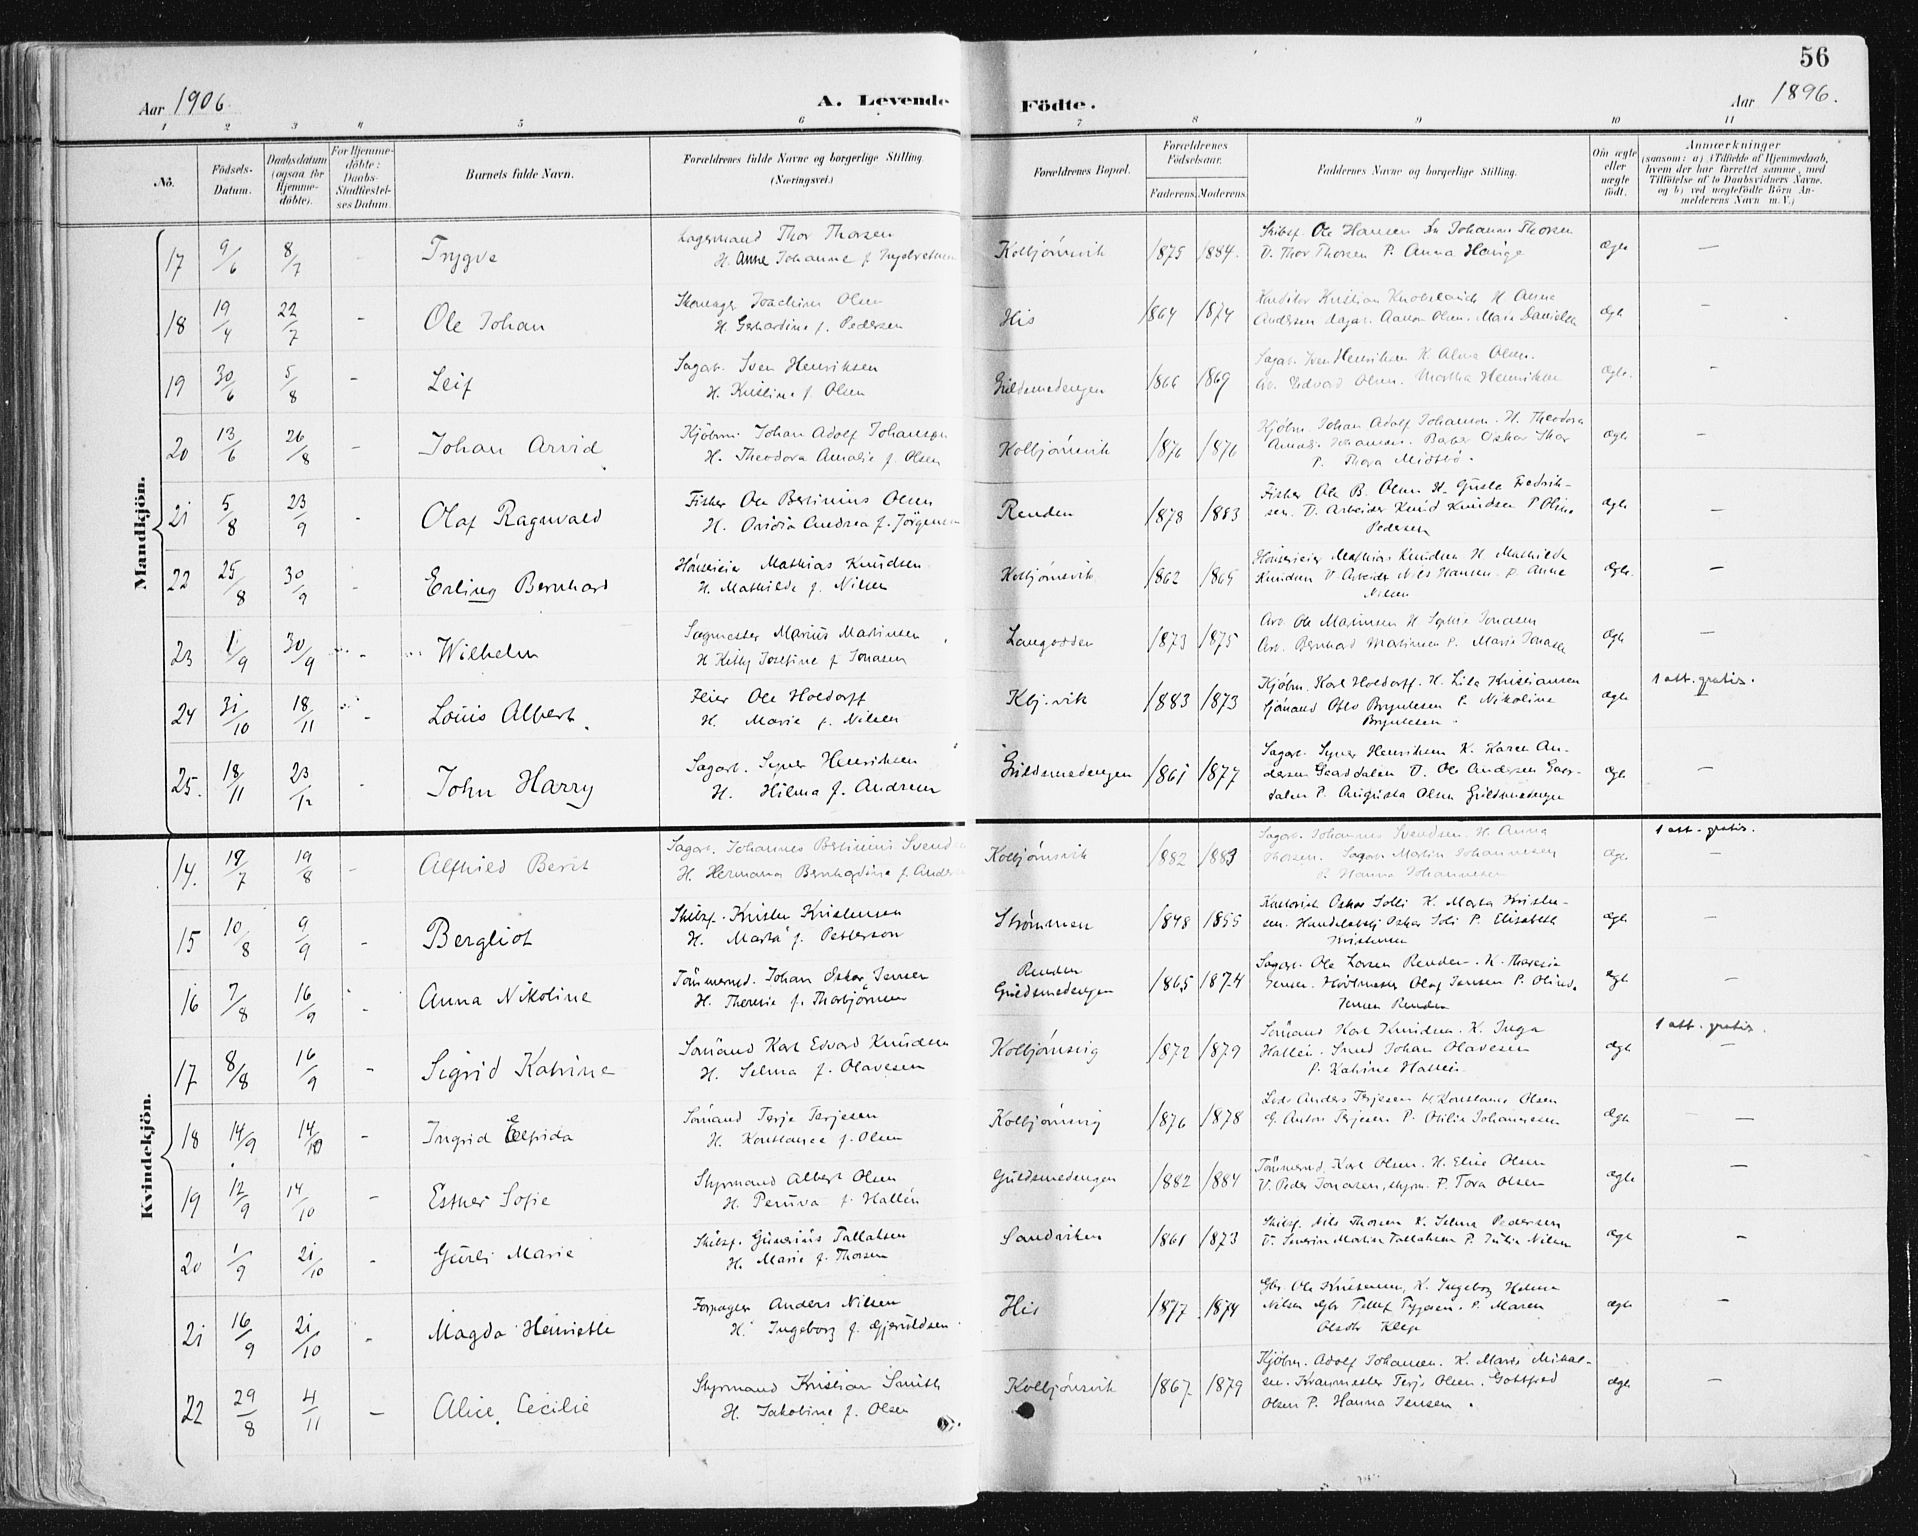 56
Aar 1906.
A. Levende
Födte.
Aar 1896.
1 2 3 4 5 6 7 8 9 10 11
No.
Födsels-Datum.
Daabsdatum (ogsaa for Hjemme-döbte).
For Hjemme-döbte: Daabs-Stadfæstelses Datum.
Barnets fulde Navn.
Forældrenes fulde Navne og borgerlige Stilling. (Næringsvei.)
Forældrenes Bopæl.
Forældrenes Födselsaar.
Faderens. Moderens.
Faddernes Navne og borgerlige Stilling.
Om ægte eller uægte født.
Anmærkninger
(saasom: a) i Tilfælde af Hjemmedaab,
hvem der har forrettet samme, med
Tilföielse af to Daabsvidners Navne,
og b) ved uægtefödte Börn An-
melderens Navn m. V.)
Mandkjön.
17 9/6 8/7 - Trygve
Lagermand Thor Thorsen
H. Anne Johanne f.
Kolbjørnsvik 1875 1884.
Skibsf. Ole Hansen Johanne Thorsen
U. Thor Thorsen P. Anna Hauge
ægte —
18 19/4 22/7 - Ole Johan
Joachim Olsen
H. Gerhardine f. Pedersen
His 1864 1874
Kristian H. Anna
Andersen Aanon Olsen. Marie Danielsen
ægte -
19 30/6 5/8 - Leif
Sagarb. Sven Henriksen
H. Kristine f. Olsen
Guldsmedengen 1866 1869
Sagarb. Sven Henriksen K. Alma Olsen.
Edvard Olsen. Martha Henriksen
ægte. -
20 13/6 26/8 - Johan Arvid
Kjöbm. Johan Adolf Johansen
H. Theodora Amalie f. Olsen
Kolbjørnsvik 1876 1876
Kjöbm. Johan Adolf Johansen. H. Theodora
Amalie Johansen. Barber Oskar
P. Thora Midtbö.
ægte -
21 5/8 23/9 - Olaf Ragnvald
Fisker Ole Bertinius Olsen
H. Ovidia Andrea f. Jörgensen
Renden 1878 1883
Fisker Ole B. Olsen H. Gusta Fredrik-
sen. U. Arbeider Knud Knudsen P Oline
Pedersen
ægte —
22 25/8 30/9 - Erling Bernhard
Huseier Mathias Knudsen
H. Mathilde f. Nilsen
Kolbjørnsvik 1862 1865
Huseier Mathias Knudsen H. Mathilde
Knudsen U Arbeider Nils Hansen. P. Anne
Nilsen
ægte. —
23 1/9 30/9 - Wilhelm
Sagmester Marius Martinsen
H Kitty Josefine f Jonasen
Langodden 1873 1875
Arb. Ole H Sophie Jonasen
Arb. Bernhard Martinsen P. Marie Jonasen
ægte —
24 31/10 18/11 - Louis Albert.
Feier Ole Holdorff
H. Marie f. Nilsen
Kbj.vik 1883 1873
Kjöbm. Karl Holdorff. H. Lila Kristiansen
Sjømand Otto Bryntesen P. Nikoline
Bryntesen.
ægte 1 att. gratis.
25. 18/11 23/12 - John Harry
Sagarb. Syver Henriksen
H. Hilma f. Andersen
Guldsmedengen 1861 1877
Sagarb. Syver Henriksen K. Karen An-
dersen Gaarddalen U. Ole Andersen Gaar-
dalen P. Augusta Olsen Guldsmedengen
ægte —
Kvindekjön.
14. 18/7 19/8 - Alfhied Berit
Sagarb. Johannes Bertinius Svendsen
H. Hermana Bernhardine f. Andersen
Kolbjørnsvik 1882 1883
Sagarb. Johannes Svendsen. H. Anna
Thorsen. Sagarb. Martin Johannesen
P. Hanna Johannesen
ægte 1 att. gratis. —
15 10/8 9/9 - Bergliot
Skibsf. Krister Kristensen
H. Marta f. Petterson
Strømmen 1848 1855
Oskar Solli K. Marta Kristen-
sen. Oskar Soli P. Elisabeth
Kristensen
ægte —
16 7/8 16/9 - Anna Nikoline
Tømmermd. Johan Oskar Jensen
H. Theresie f. Thorbjörnsen
Renden
Guldsmedengen 1865 1874
Sagarb. Ole Larsen Renden. K. Theresia
Jensen. Olaf Jensen P. Olinda
Jensen Renden
ægte -
17 8/8 16/9 - Sigrid Katrine
Sømand Karl Edvard Knudsen
H. Selma f. Olavesen
Kolbjørnsvig 1872 1879
Sømand Karl Knudsen. K. Inga
Hallén. Smed Johan Olavesen
P. Katrine Hallén.
ægte 1 att. gratis. —
18 14/9 14/10 - Ingrid Elfrida
Sømand Terje Terjesen
H. Konstanse f. Olsen
Kolbjørnsvig 1876 1878
Lods Anders Terjesen H. Konstanse Olsen
G. Anton Terjesen P. Otilie Johannesen
ægte —
19 12/9 14/10 - Esther Sofie
Styrmand Albert Olsen
H. Peruva f. Hallén
Guldsmedengen 1882 1884
Tømmermd. Karl Olsen. H. Elise Olsen
U. Peder Jonasen, styrm. P. Tora Olsen
ægte —
20 1/9 21/10 - Gurli Marie
Skibsf. Gunerius Tallaksen
H. Marie f. Thorsen
Sandviken 1861 1873
Skibsf. Nils Thorsen K. Selma Pedersen
U. Severin Martin Tallaksen P. Julie Nilsen
ægte -
21 16/9 21/10 - Magda Henriette
Forpagter Anders Nilsen
H. Ingeborg f. Gjeruldsen.
His 1877 1874
Gbr. Ole Kristensen, K. Ingeborg Helene
Nilsen Gbr Tellef Tygesen. P. Maren
Olsdtr Klep
ægte -
22 29/8 4/11 - Alice Cecilie
Styrmand Kristian Smith
H. Jakobine f. Olsen
Kolbjørnsvik 1867 1879
Kjöbm. Adolf Johansen. K. Marie Mikal-
sen. Kranmester Terje Olsen. Gottfred
Olsen P. Hanna Jensen.
ægte —